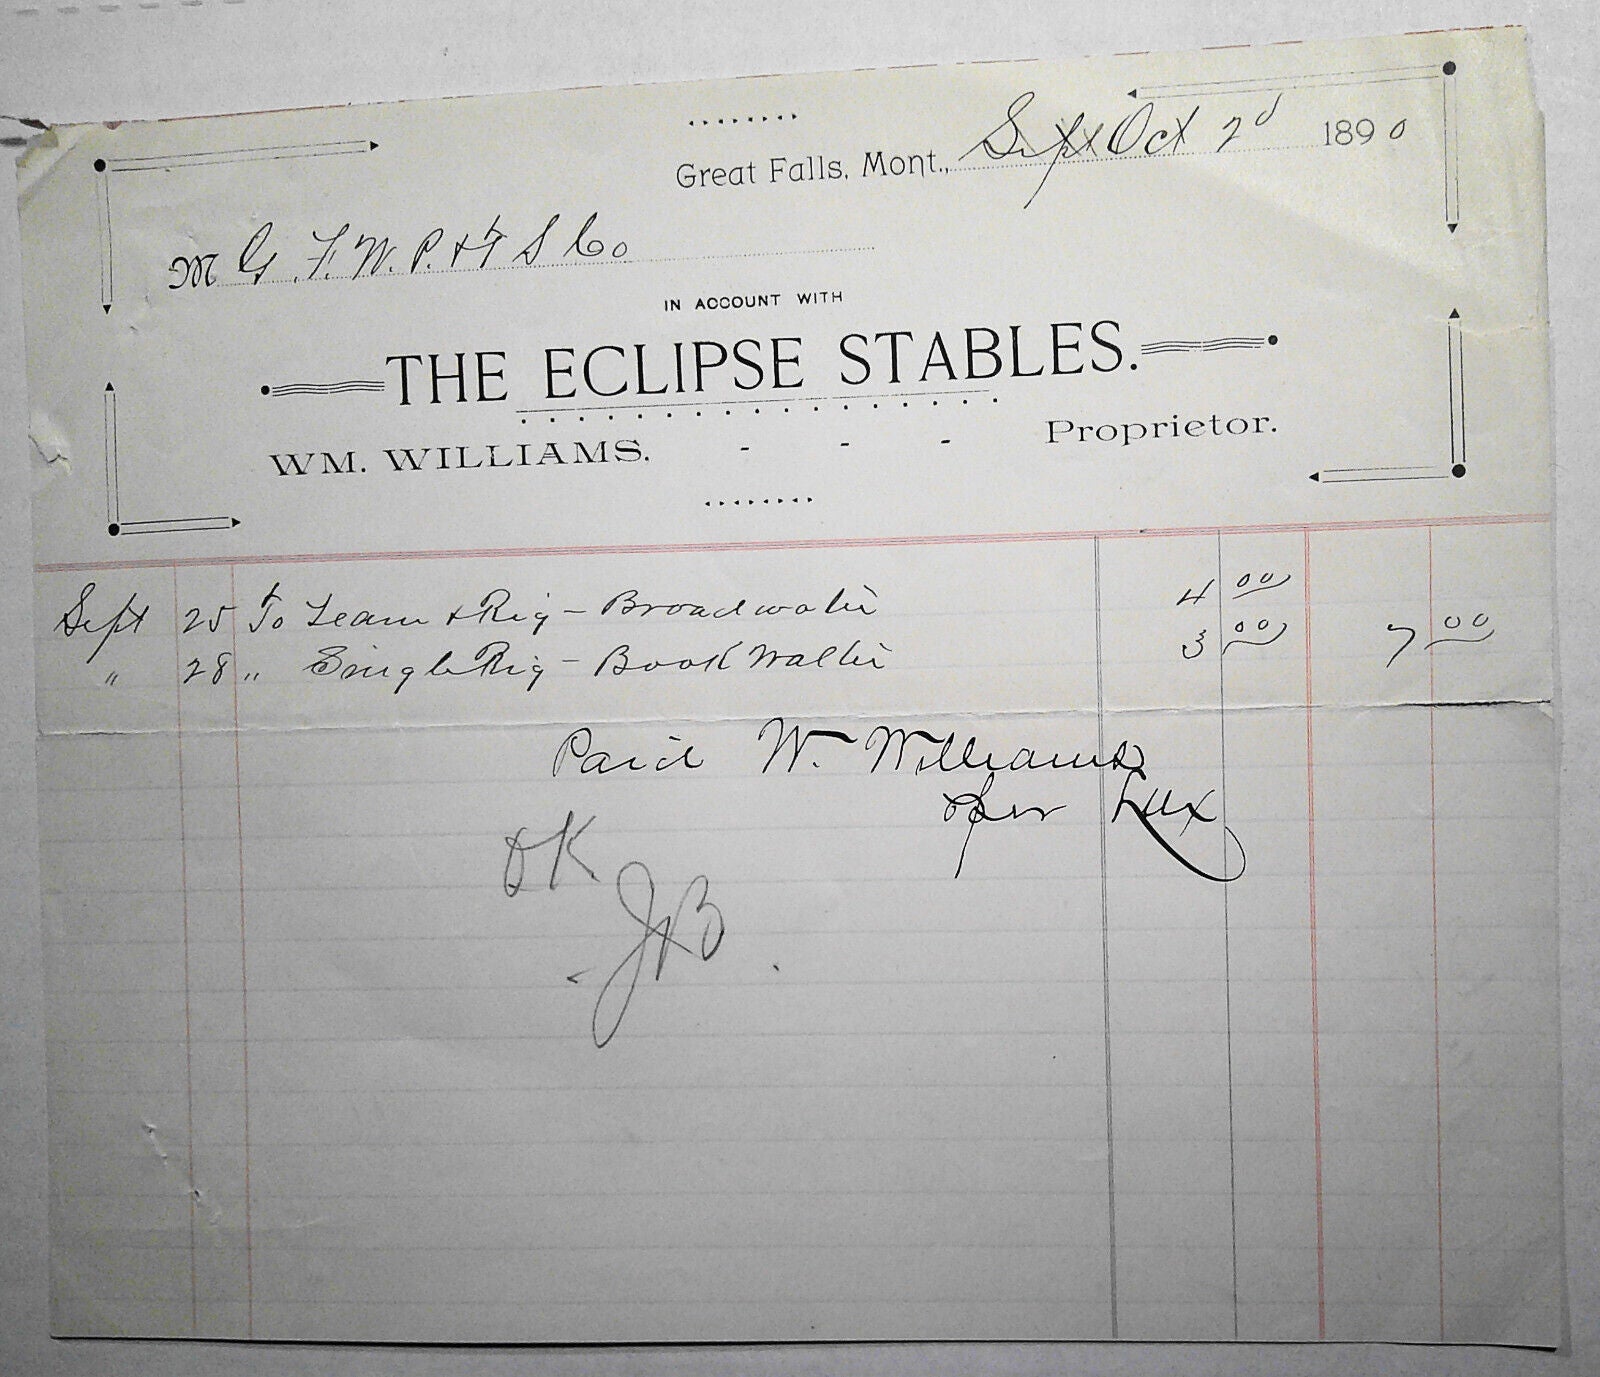 Great Falls, Mont., Sept Oct 2d 1890
M G. F. W. P. & T S Co
IN ACCOUNT WITH
THE ECLIPSE STABLES.
WM. WILLIAMS. - - - Proprietor.
Sept 25 To Team & Rig - Broadwater 4 00
" 28 " Single Rig - Bookwalter 3 00 7 00
Paid W. Williams
per Lux
OK
JB